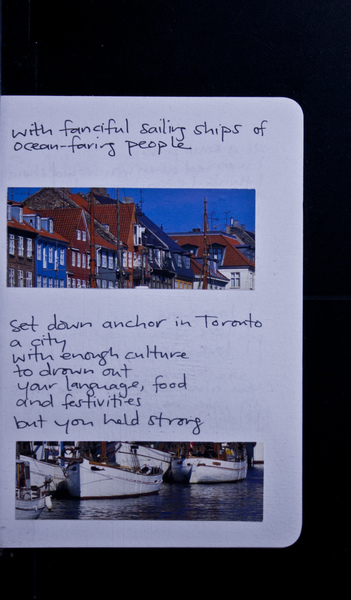 with fanciful sailing ships of
ocean-faring people
set down anchor in Toronto
a city
with enough culture
to drown out
your language, food
and festivities
but you held strong